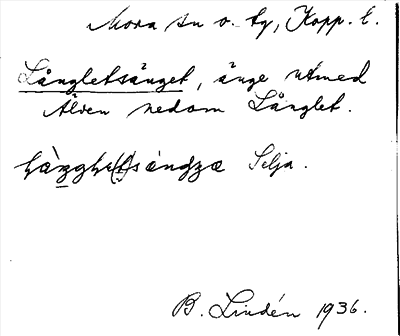 Mora sn o. tg, Kopp. l.
Långletsänget, änge utmed
älven nedom Långlet.
Selja.
B. Lindén 1936.